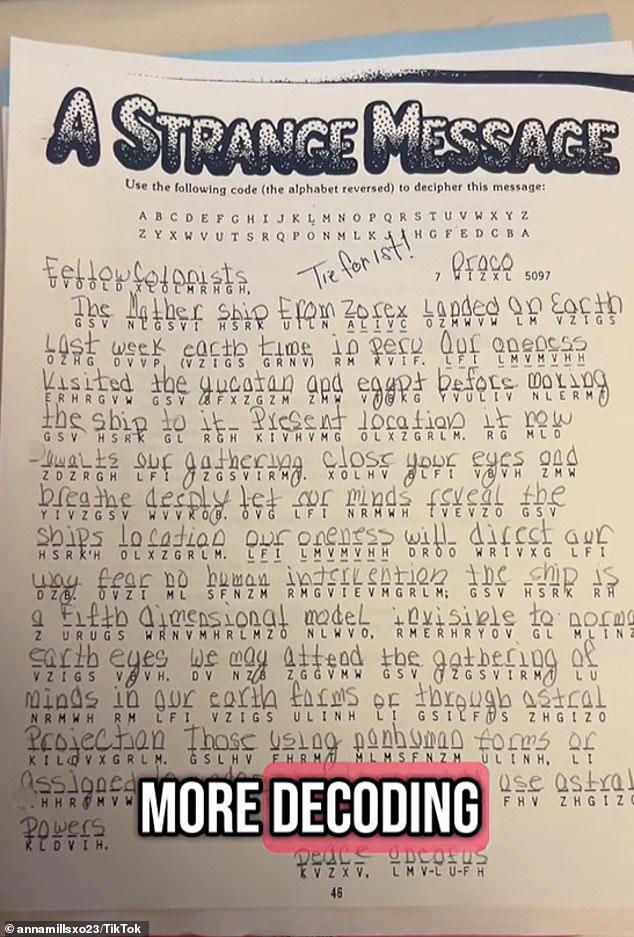 A STRANGE MESSAGE
Use the following code (the alphabet reversed) to decipher this message:
A B C D E F G H I J K L M N O P Q R S T U V W X Y Z
Z Y X W V U T S R Q P O N M L K J I H G F E D C B A
Tie for 1st!
Fellow Colonists Draco
U V O O L D X L O L M R H G H, 7 W I Z X L 5097
The Mother ship From Zorex Landed on Earth
G S V N L G S V I H S R K U I L N A L I V C O Z M W V W L M V Z I G S
Last week earth time in peru Our oneness
O Z H G D V V P (V Z I G S G R N V) R M K V I F. L F I L M V M V H H
Visited the yucatan and egypt before moving
E R H R G V W G S V B F X Z G Z M Z M W V T B K G Y V U L I V N L E R M T
the ship to it- Present location it now
G S V H S R K G L R G H K I V H V M G O L X Z G R L M. R G M L D
awaits our gathering close your eyes and
Z D Z R G H L F I T Z G S V I R M T. X O L H V B L F I V B V H Z M W
breathe deeply let our minds reveal the
Y I V Z G S V W V V K O B. O V G L F I N R M W H I V E V Z O G S V
ships location our oneness will direct our
H S R K'H O L X Z G R L M. L F I L M V M V H H D R O O W R I V X G L F I
way fear no human intervention the ship is
D Z B. U V Z I M L S F N Z M R M G V I E V M G R L M; G S V H S R K R H
a fifth dimensional model invisible to norma
Z U R U G S W R N V M H R L M Z O N L W V O, R M E R H R Y O V G L M L I N Z
earth eyes we may attend the gathering of
V Z I G S V B V H. D V N Z B Z G G V M W G S V T Z G S V I R M T L U
minds in our earth forms or through astral
N R M W H R M L F I V Z I G S U L I N H L I G S I L F T S Z H G I Z O
Projection Those using nonhuman forms or
K I L Q V X G R L M. G S L H V F H R M T M L M S F N Z M U L I N H, L I
assigned use astral
H H R T M V W F H V Z H G I Z O
Powers
K L D V I H.
peace one of us
K V Z X V, L M V - L U - F H
46
MORE DECODING
© annamillsxo23/TikTok